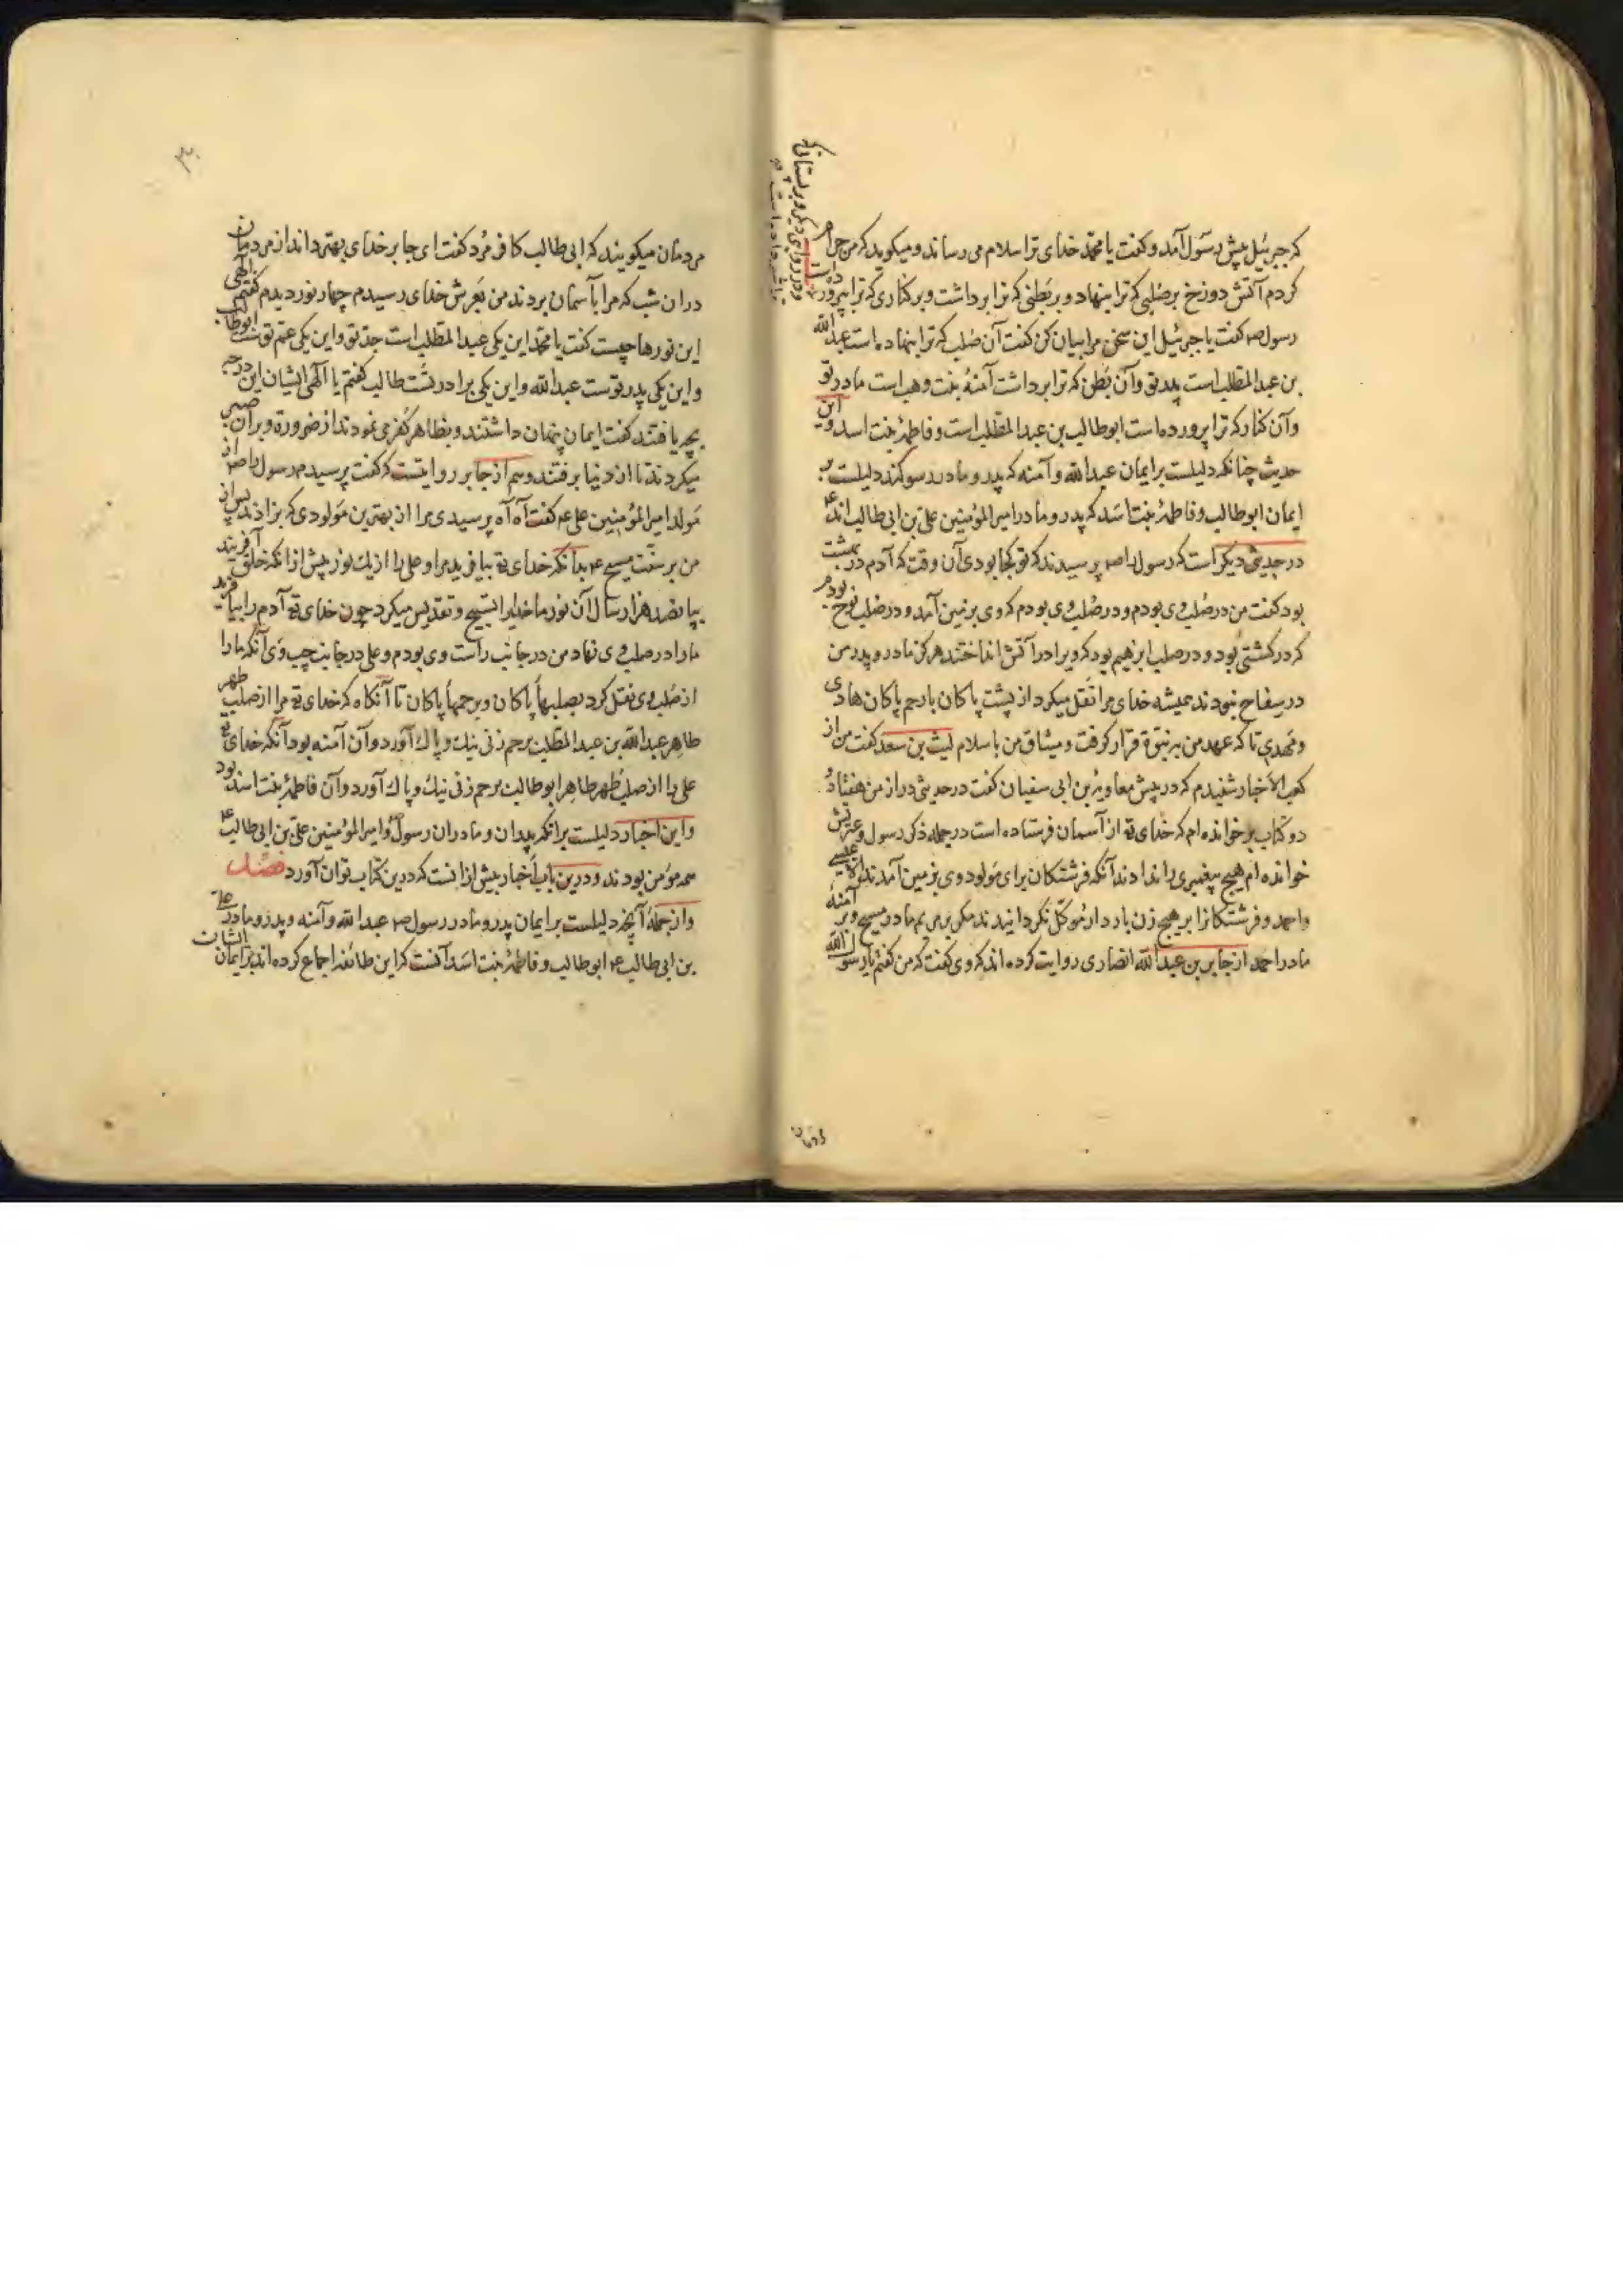 که جبرئیل پیش رسول آمد و گفت یا محمد خدای ترا سلام می رساند و میگوید که من حرام
کردم آتش دوزخ بر صلبی که ترا بنهاد و بر بطنی که ترا برداشت و بر کناری که ترا بپرورده است
رسول صم گفت یا جبرئیل این سخن مرا بیان کن گفت آن صلب که ترا بنهاده است عبدالله
بن عبدالمطلب است پدر تو و آن بطن که ترا برداشت آمنه بنت وهب است مادر تو
و آن کنار که ترا پرورده است ابوطالب بن عبدالمطلب است و فاطمه بنت اسد و این
حدیث چنانکه دلیلست بر ایمان عبدالله و آمنه که پدر و مادر رسولند دلیلست بر
ایمان ابوطالب و فاطمه بنت اسد که پدر و مادر امیر المؤمنین علی بن ابی طالب اند ع
در حدیثی دیگر است که رسول را صم پرسیدند که تو کجا بودی آن وقت که آدم در بهشت
بود گفت من در صلب وی بودم و در صلب وی بودم که وی بر زمین آمد و در صلب نوح بودم
که در کشتی بود و در صلب ابرهیم بود که ویرا در آتش انداختند هرگز مادر و پدر من
در سفاح نبودند همیشه خدای مرا نقل میکرد از پشت پاکان با رحم پاکان هادی
و مهدی تا که عهد من به نبوة قرار گرفت و میثاق من باسلام لیث بن سعد گفت من از
کعب الاخبار شنیدم که در پیش معاویه بن ابی سفیان گفت در حدیثی دراز من هفتاد و
دو کتاب بر خوانده ام که خدای تع از آسمان فرستاده است در جمله ذکر رسول و عترتش
خوانده ام هیچ پیغمبری را ندادند آنکه فرشتگان برای مولود وی بزمین آمدند الا عیسی
و احمد و فرشتگانرا بر هیچ زن باردار موکل نگردانیدند مگر بر مریم مادر مسیح و بر آمنه
مادر احمد از جابر بن عبدالله انصاری روایت کرده اند که وی گفت که من گفتم یا رسول الله
و در روایتی دیگر و بر پستانی که
مردمان
مردمان میگویند که ابی طالب کافر مرد گفت ای جابر خدای بهتر داند از مردمان
دران شب که مرا بآسمان بردند من بعرش خدای رسیدم چهار نور دیدم گفتم الهی
این نورها چیست گفت یا محمد این یکی عبدالمطلب است جد تو و این یکی عم تو است ابوطالب
و این یکی پدر توست عبدالله و این یکی برادر تست طالب گفتم یا الهی ایشان این درجه
بچه یافتند گفت ایمان پنهان داشتند و بظاهر کفر می نمودند از ضرورة و بر آن صبر
میکردند تا از دنیا برفتند و هم از جابر روایتست که گفت پرسیدم رسول را صم از
مولد امیر المؤمنین علی عم گفت آه آه پرسیدی مرا از بهترین مولودی که بزادند پس از
من بر سنت مسیح عم بدانکه خدای تع بیافرید مرا و علی را از یک نور پیش از آنکه خلق آفریند
بپانصد هزار سال آن نور ما خدایرا تسبیح و تقدیس میکرد چون خدای تع آدم را بیافرید
ما را در صلب وی نهاد من در جانب راست وی بودم و علی در جانب چپ وی آنگه ما را
از صلب وی نقل کرد بصلبهاء پاکان و برحمهاء پاکان تا آنگاه که خدای تع مرا از صلب طهر
طاهر عبدالله بن عبدالمطلب برحم زنی نیک و پاک آورد و آن آمنه بود آنگه خدای تع
علی را از صلب طهر طاهر ابوطالب برحم زنی نیک و پاک آورد و آن فاطمه بنت اسد بود
و این اخبار دلیلست برانکه پدران و مادران رسول و امیر المؤمنین علی بن ابی طالب ع
همه مؤمن بودند و درین باب اخبار بیش از انست که درین کتاب توان آورد فصل
و از جمله آنچه دلیلست بر ایمان پدر و مادر رسول صم عبدالله و آمنه و پدر و مادر علی
بن ابی طالب عم ابوطالب و فاطمه بنت اسد آنست که این طائفه اجماع کرده اند بر ایمان ایشان